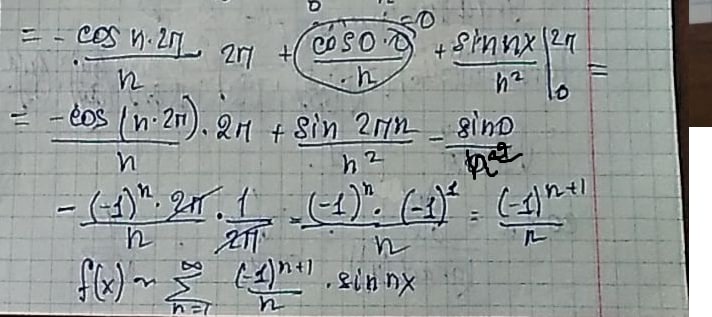 = - cos n·2π / n · 2π + (cos 0·0 / n) = 0 + sin nx / n² |₀^2π =
= -cos(n·2π) / n · 2π + sin 2πn / n² - sin 0 / n²
- (-1)ⁿ · 2π / n · 1 / 2π = (-1)ⁿ · (-1)¹ / n = (-1)ⁿ⁺¹ / n
f(x) ~ ∑_{n=1}^∞ (-1)ⁿ⁺¹ / n · sin nx